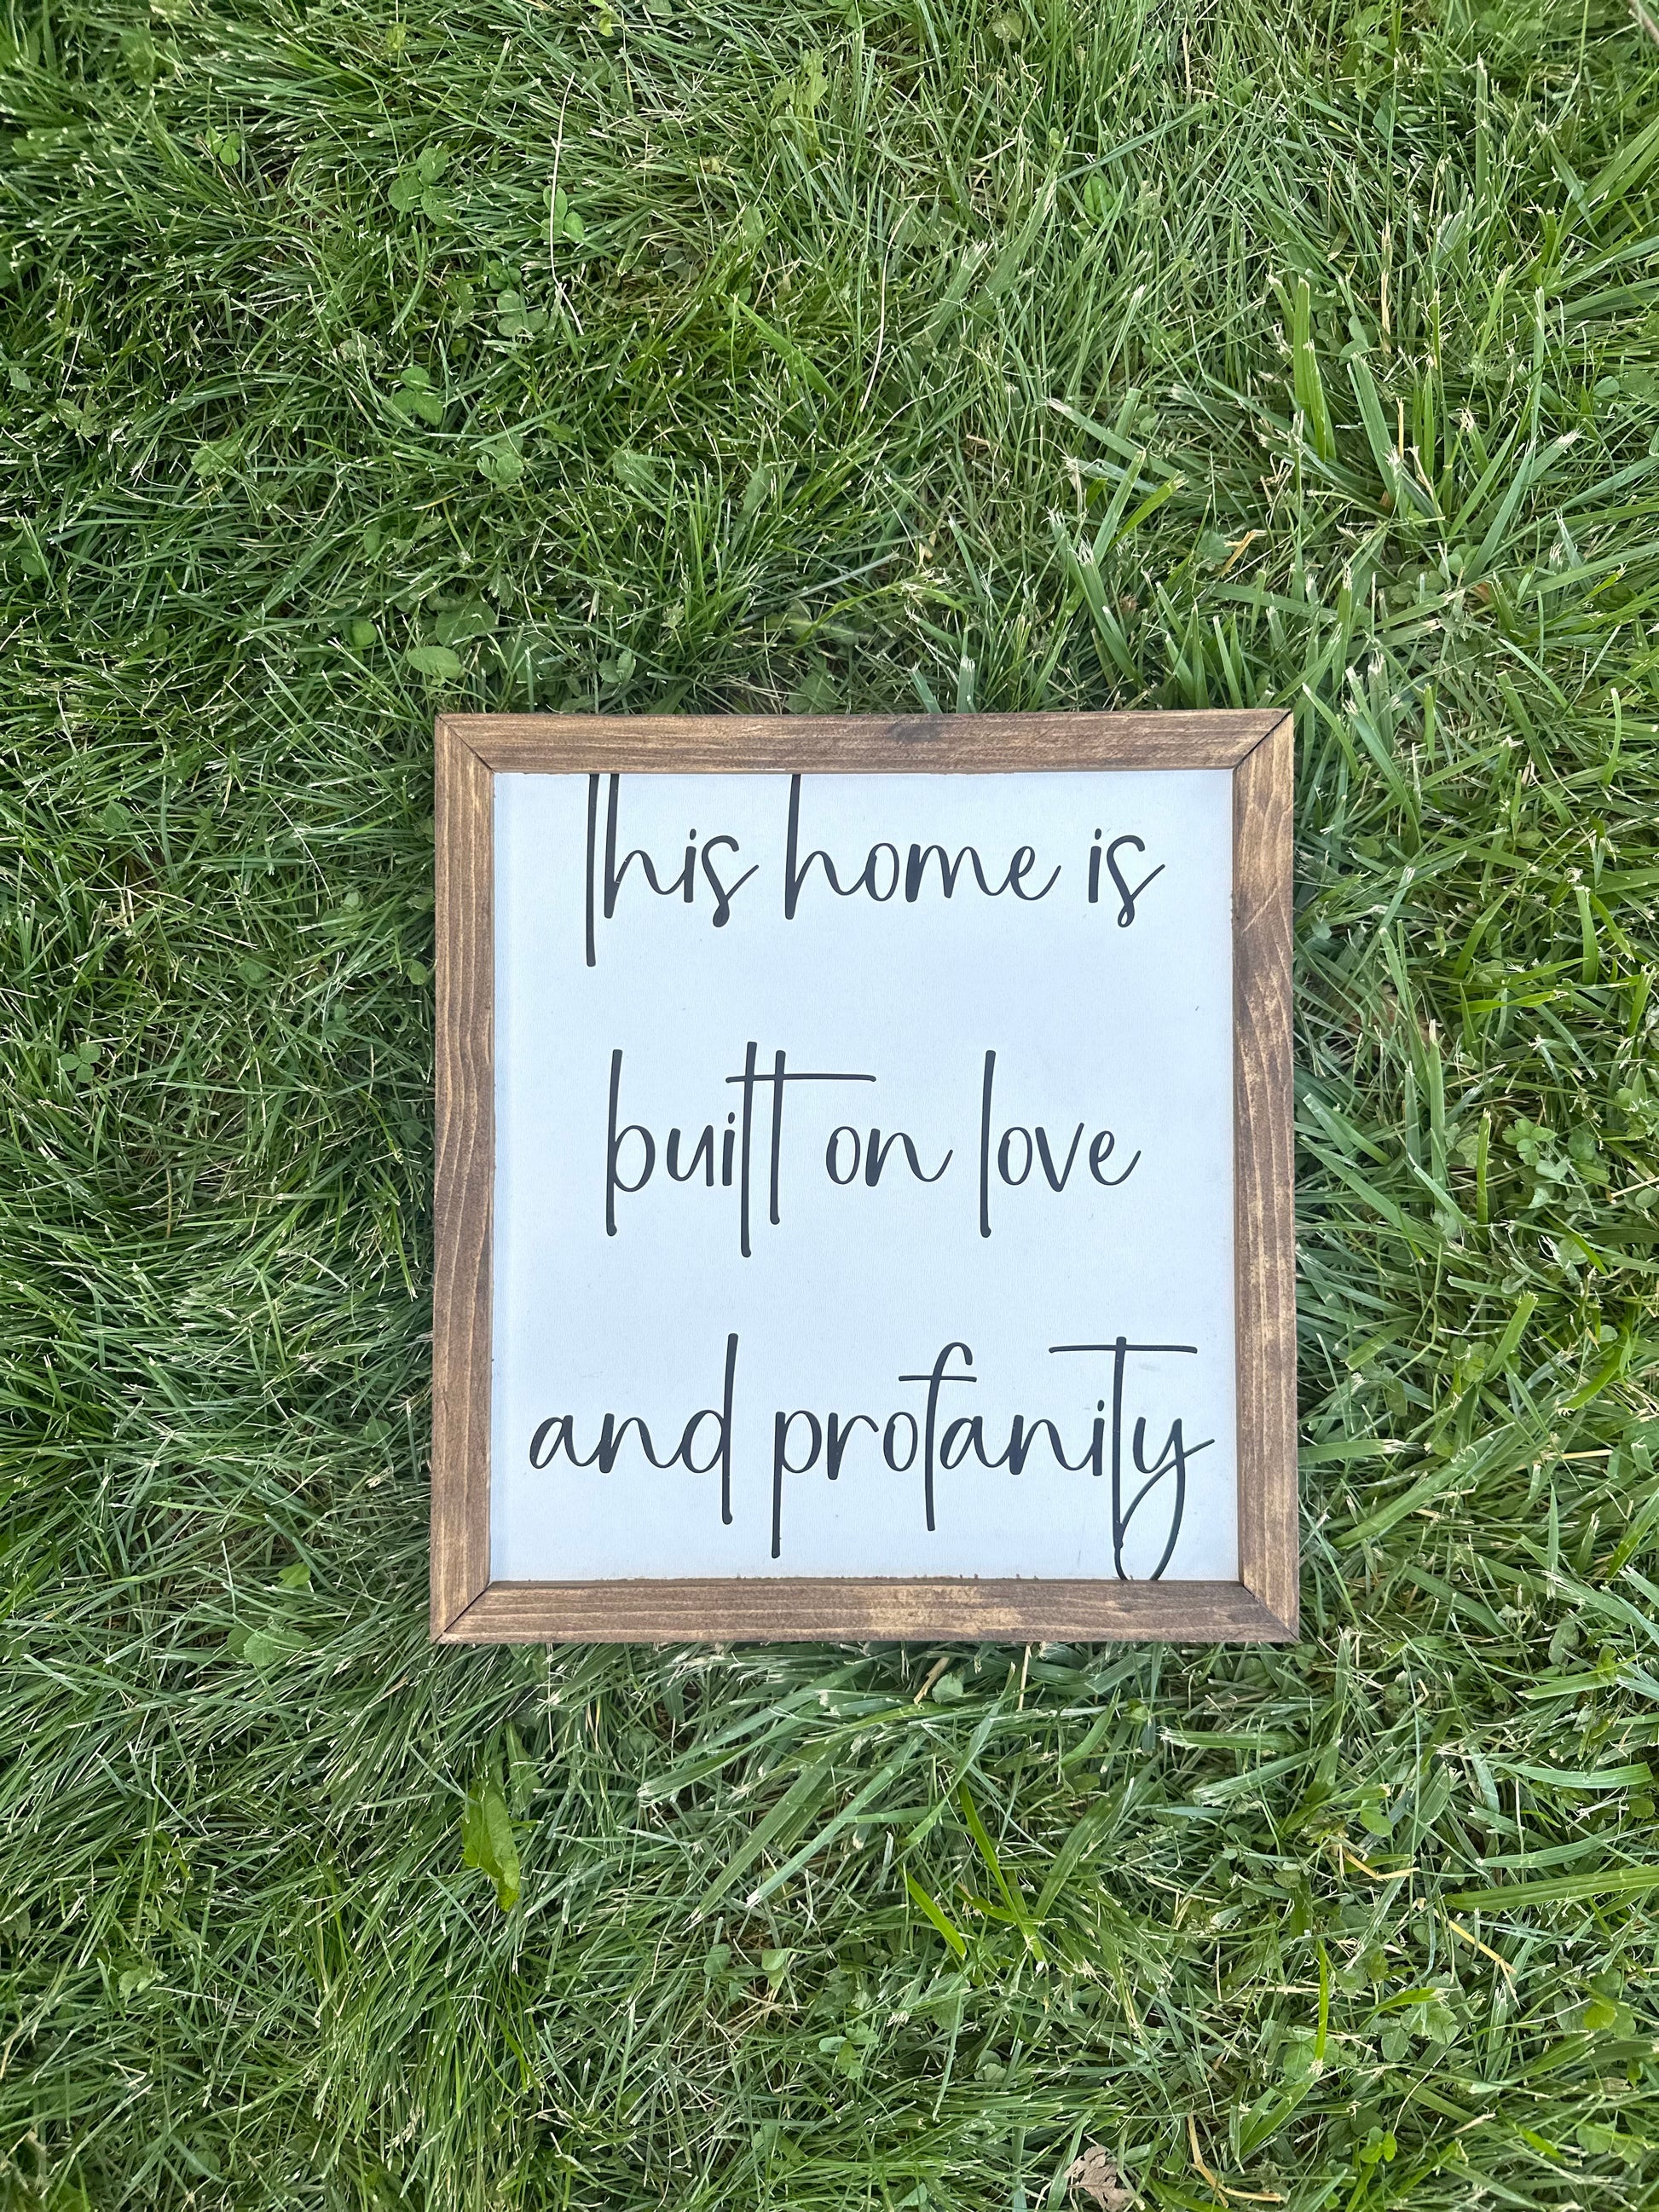 This home is
built on love
and profanity